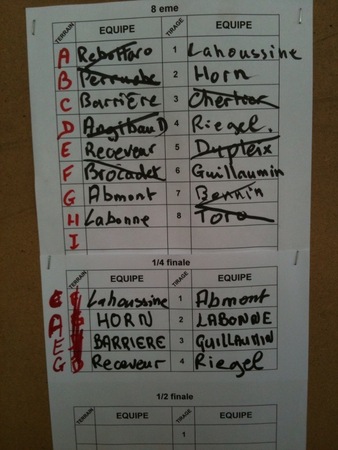 8 eme
TERRAIN EQUIPE TIRAGE EQUIPE
A Rebottaro 1 Lahoussine
B Perruche 2 Horn
C BarriÈre 3 Cherkor
D Angibaud 4 Riegel.
E Receveur 5 Dupleix
F Brocadet 6 Guillaumin
G Abmont 7 Bernin
H Labonne 8 Toro
I
1/4 finale
TERRAIN EQUIPE TIRAGE EQUIPE
Lahoussine 1 Abmont
A HORN 2 LABONNE
E BARRIERE 3 GUILLAUMIN
G Receveur 4 Riegel
1/2 finale
TERRAIN EQUIPE TIRAGE EQUIPE
1